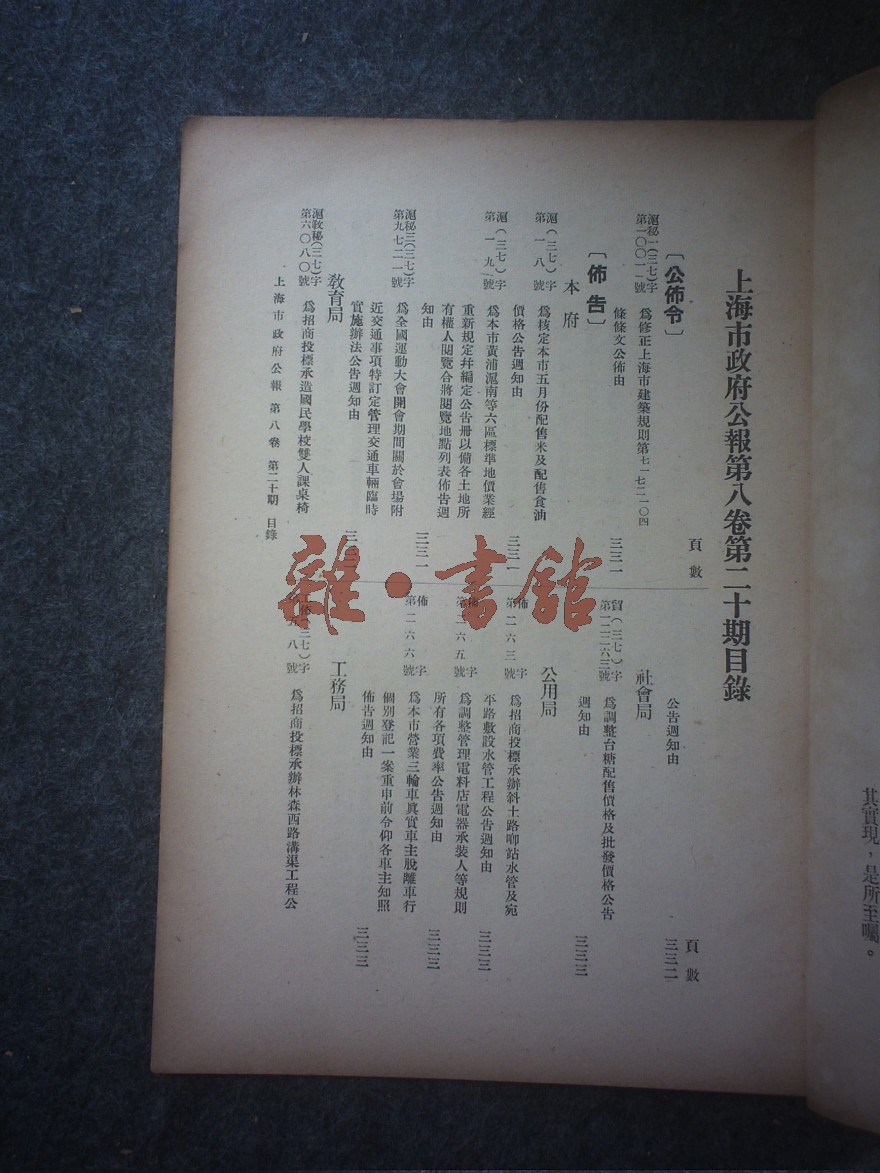 其實現，是所至囑。
上海市政府公報第八卷第二十期目錄
頁數
〔公佈令〕
滬秘一(三七)字
第一〇〇一一號
為修正上海市建築規則第七一七二一〇四
條條文公佈由
三三一
〔佈告〕
本府
滬(三七)字
第一八號
為核定本市五月份配售米及配售食油
價格公告週知由
三三一
滬(三七)字
第一九號
為本市黃浦滬南等六區標準地價業經
重新規定幷編定公告冊以備各土地所
有權人閱覽合將閱覽地點列表佈告週
知由
三三一
滬秘三(三七)字
第九七二一號
為全國運動大會開會期間關於會場附
近交通事項特訂定管理交通車輛臨時
實施辦法公告週知由
教育局
滬教秘(三七)字
第六〇八〇號
為招商投標承造國民學校雙人課桌椅
頁數
公告週知由
三三二
社會局
貿(三七)字
第一二二六三號
為調整台糖配售價格及批發價格公告
週知由
三三三
公用局
佈字
第二六三號
為招商投標承辦斜土路唧站水管及宛
平路敷設水管工程公告週知由
三三三
字
第二六五號
為調整管理電料店電器承裝人等規則
所有各項費率公告週知由
三三三
佈字
第二六六號
為本市營業三輪車眞實車主脫離車行
個別登記一案重申前令仰各車主知照
佈告週知由
三三三
工務局
(三七)字
八號
為招商投標承辦林森西路溝渠工程公
上海市政府公報 第八卷 第二十期 目錄
雜·書館